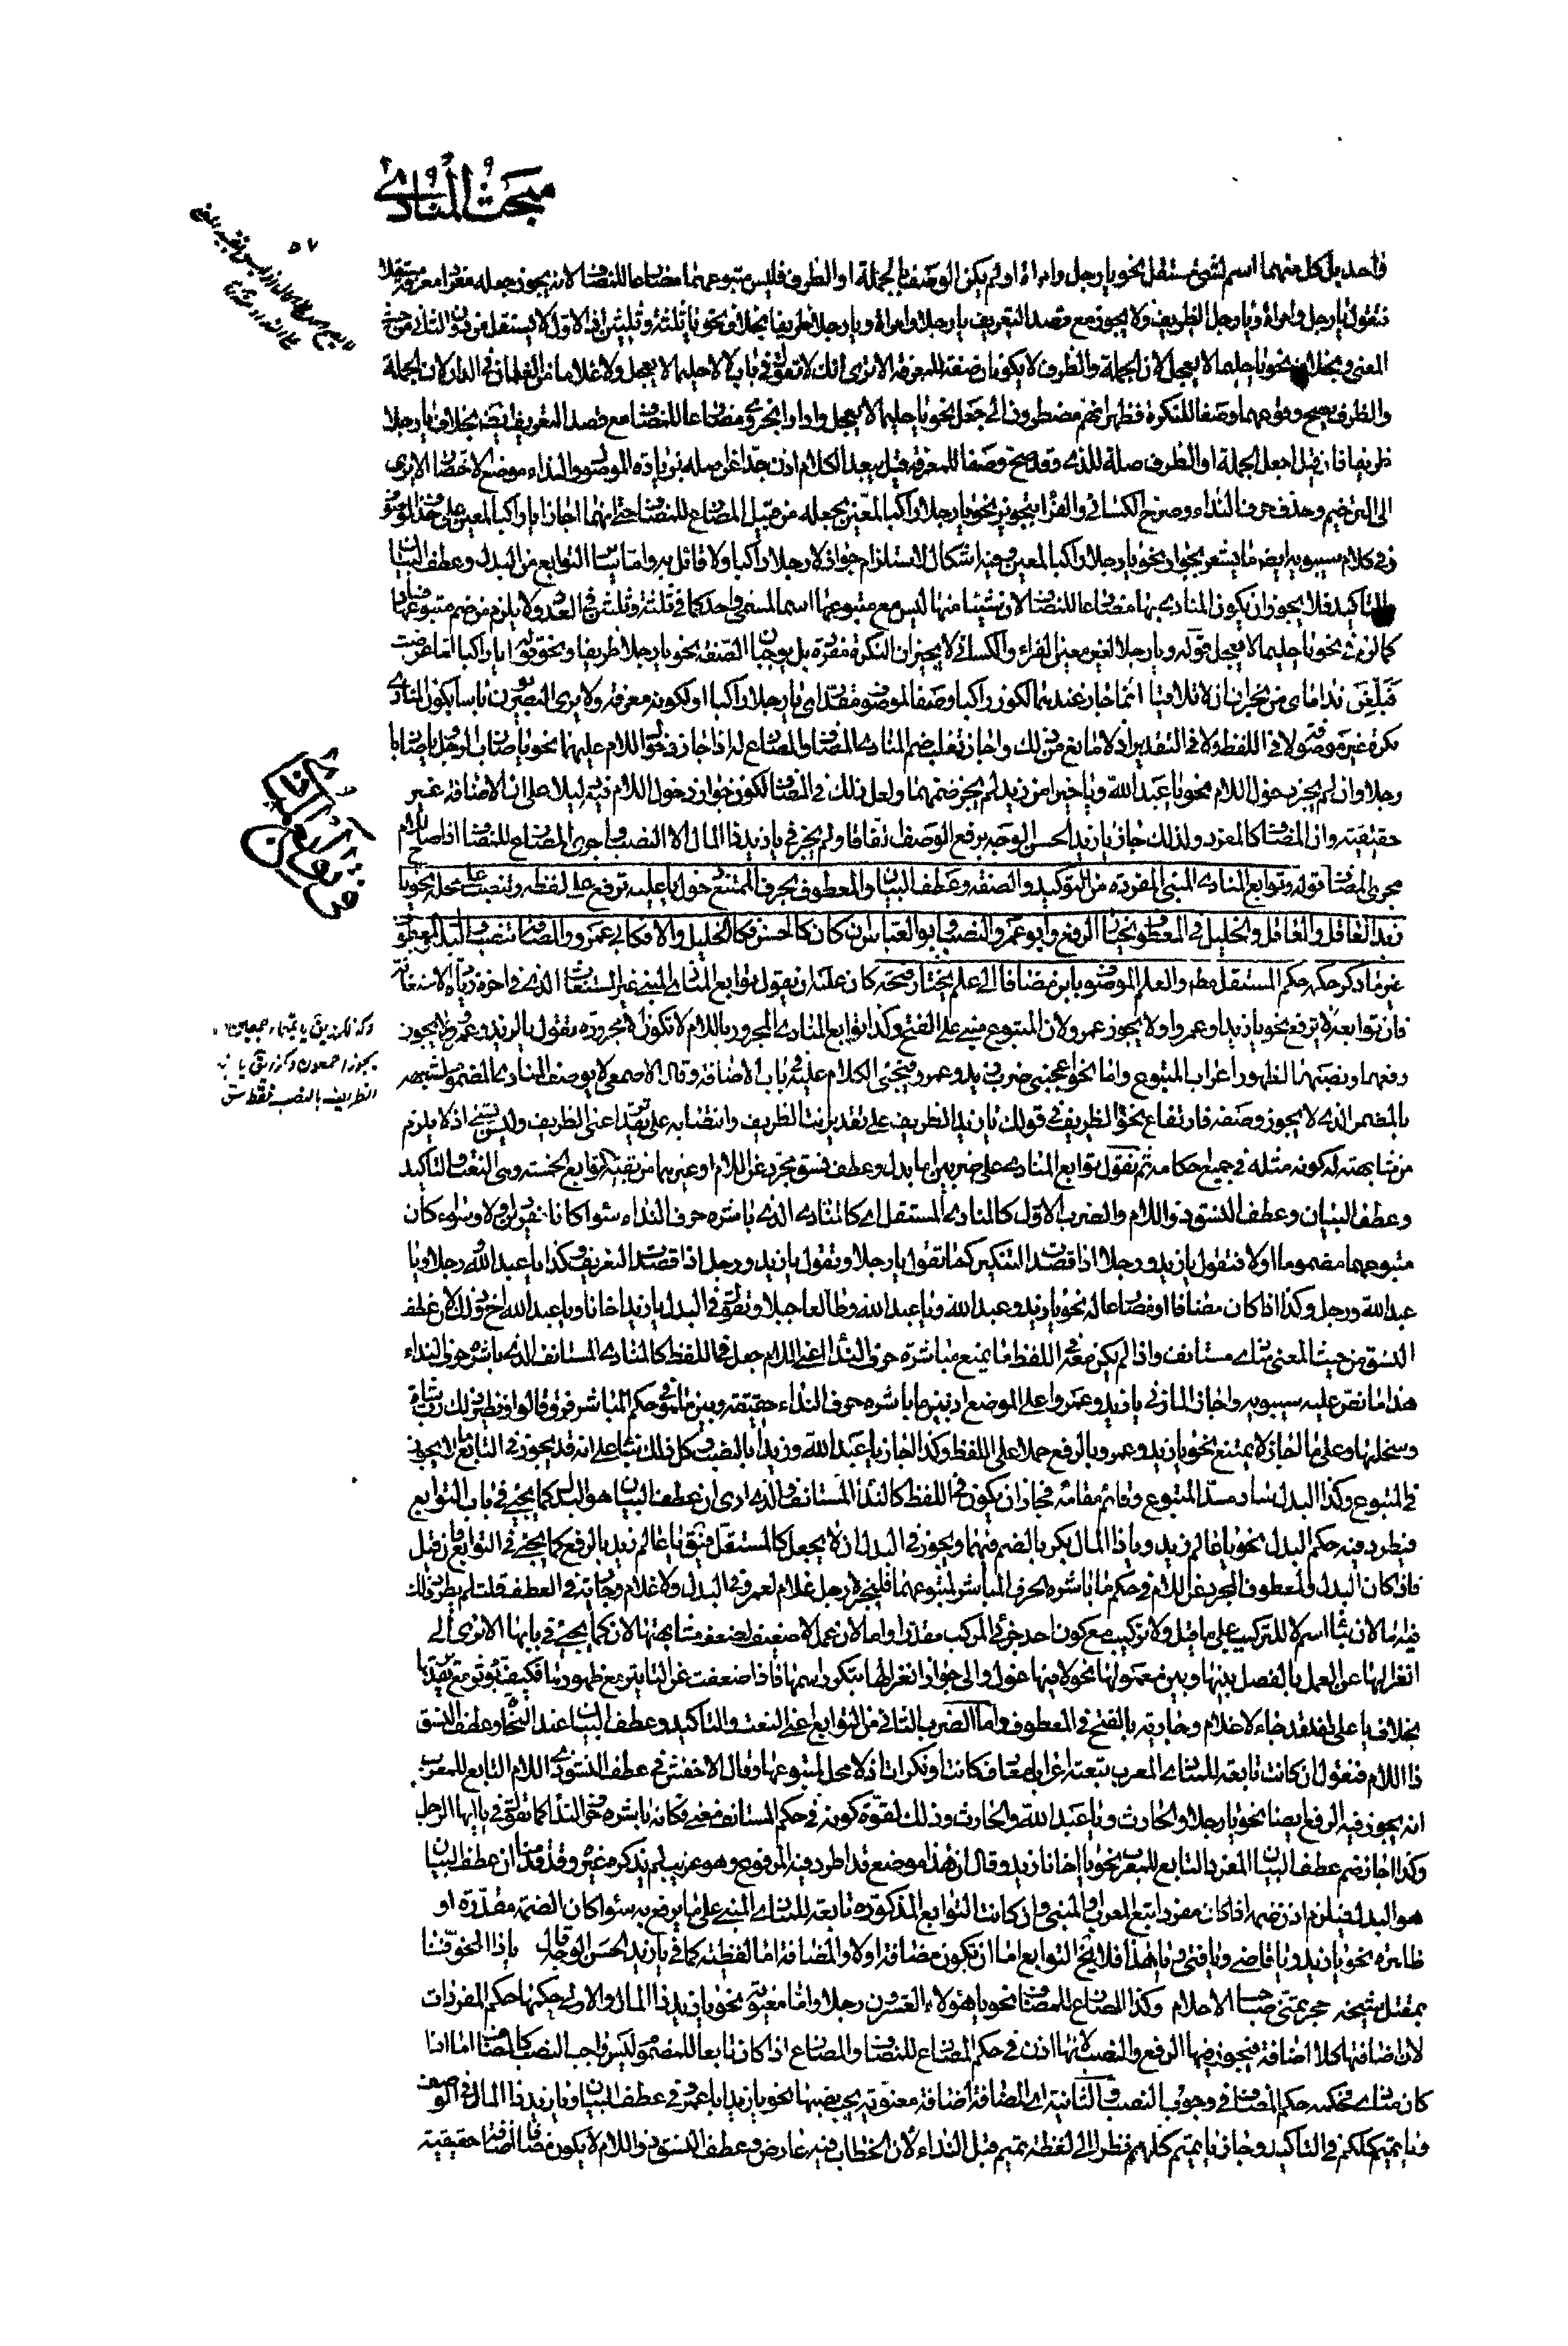 مبحث المنادى
٥٧
واحد بل كل منهما اسم لشئ مستقل نحو يا رجل وامراة او لم يكن الوصف بالجملة او الظرف فليس متبوعهما مضارعا للمضاف لانه يجوز جعله مفردا معرفة مستقلا
فتقول يا رجل وامراة ويا رجل الظريف ولا يجوز مع قصد التعريف يا رجلا وامراة ويا رجلا ظريفا بخلاف نحو يا ثلثة وثلثين اذ الاول لا يستقل من دون الثانى من حيث
المعنى وبخلاف نحو يا حليما لا يعجل لان الجملة والظرف لا يكونان صفة للمعرفة الا ترى انك لا تقول فى باب لا لا حليما لا يعجل ولا غلاما من الغلمان فى الدار لان الجملة
والظرف يصح وقوعهما وصفا للنكرة فظهر انهم مضطرون الى جعل نحو يا حليما لا يعجل وادارا بحزوى مضارعا للمضاف مع قصد التعريف ايضا بخلاف يا رجلا
ظريفا فان قيل اجعل الجملة او الظرف صلة للذى وقد صح وصفا للمعرفة قيل يبعد الكلام اذن جدا عن اصله بزيادة الموصول والنداء موضع الاختصار الا ترى
الى الترخيم وحذف حرف النداء وصرح الكسائى والفراء بتجويز نحو يا رجلا راكبا لمعين بجعله من قبيل المضارع للمضاف حتى انهما اجازا يا راكبا لمعين على حذف الموصوف
وفى كلام سيبويه ايضا ما يشعر بجواز نحو يا رجلا راكبا لمعين وفيه اشكال لاستلزام جواز لا رجلا راكبا ولا قائل به واما سائر التوابع من البدل وعطف البيان
والتاكيد فلا يجوز ان يكون المنادى بها مضارعا للمضاف لان شيئا منها ليس مع متبوعها اسما لمسمى واحد كما فى ثلثة وثلثين فى العدد ولا يلزم من ضم متبوعها
كما لزم فى نحو يا حليما لا يعجل قوله ويا رجلا لغير معين الفراء والكسائى لا يجيزان النكرة مفردة بل يوجبان الصفة نحو يا رجلا ظريفا ونحو قوله ايا راكبا اما عرضت
فبلغن نداماى من نجران ان لا تلاقيا انما جاز عندهما لكون راكبا وصفا لموصوف مقدر اى يا رجلا راكبا او لكونه معرفة ولا يرى البصريون باسا بكون المنادى
نكرة غير موصوفة لا فى اللفظ ولا فى التقدير اذ لا مانع من ذلك واجاز ثعلب ضم المنادى المضاف والمضارع له اذا جاز دخول اللام عليهما نحو يا ضارب الرجل ويا ضاربا
رجلا وان لم يجز دخول اللام نحو يا عبد الله ويا خيرا من زيد لم يجز ضمهما ولعل ذلك فى المضاف لكون جواز دخول اللام فيه دليلا على ان الاضافة غير
حقيقية وان المضاف كالمفرد ولذلك جاز يا زيد الحسن الوجه برفع الوصف اتفاقا ولم يجز فى يا زيد ذا المال الا النصب واجرى المضارع للمضاف اذا صلح للام
مجرى المضاف قوله وتوابع المنادى المبنى المفردة من التوكيد والصفة وعطف البيان والمعطوف بحرف الممتنع دخول يا عليه ترفع على لفظه وتنصب على محله نحو يا
زيد العاقل والعاقل والخليل فى المعطوف يختار الرفع وابو عمرو النصب وابو العباس ان كان كالحسن فكالخليل والا فكابى عمرو والمضافة تنصب والبدل والمعطوف
غير ما ذكر حكمه حكم المستقل مطلقا والعلم الموصوف بابن مضافا الى علم آخر يختار فتحه كان عليه ان يقول توابع المنادى المبنى غير المستغاث الذى فى اخره زيادة الاستغاثة
فان توابعه لا ترفع نحو يا زيدا وعمرا ولا يجوز عمرو لان المتبوع مبنى على الفتح وكذا توابع المنادى المجرور باللام لا تكون الا مجرورة تقول يا لزيد وعمرو ولا يجوز
رفعها ونصبها لظهور اعراب المتبوع واما نحو اعجبنى ضرب زيد وعمرو فيجئ الكلام عليه فى باب الاضافة وقال الاصمعى لا يوصف المنادى المضموم لشبهه
بالمضمر الذى لا يجوز وصفه فارتفاع نحو الظريف فى قولك يا زيد الظريف على تقدير انت الظريف وانتصابه على تقدير اعنى الظريف وليس بشئ اذ لا يلزم
من مشابهته له كونه مثله فى جميع احكامه ثم نقول توابع المنادى على ضربين اما بدل وعطف نسق مجرد عن اللام او غيرهما من بقية التوابع الخمسة وهى النعت والتاكيد
وعطف البيان وعطف النسق ذو اللام والضرب الاول كالمنادى المستقل اى كالمنادى الذى باشره حرف النداء سواء كانا مفردين او لا وسواء كان
متبوعهما مضموما او لا فتقول يا زيد ورجلا اذا قصدت التنكير كما تقول يا رجلا وتقول يا زيد ورجل اذا قصدت التعريف وكذا يا عبد الله ورجلا ويا
عبد الله ورجل وكذا اذا كان مضافا او مضارعا له نحو يا زيد وعبد الله ويا عبد الله وطالعا جبلا وتقول فى البدل يا زيد اخانا ويا عبد الله اخ وذلك لان عطف
النسق من حيث المعنى منادى مستانف واذا لم يكن معه فى اللفظ ما يمنع مباشرة حرف النداء اعنى اللام جعل فى اللفظ كالمنادى المستانف الذى باشره حرف النداء
هذا ما نص عليه سيبويه واجاز المازنى يا زيد وعمرا على الموضع اذ بين ما باشره حرف النداء حقيقة وبين ما هو فى حكم المباشر فرق قالوا ونظير ذلك رب شاة
وسخلتها وعلى ما اجاز لا يمتنع نحو يا زيد وعمرو بالرفع حملا على اللفظ وكذا اجاز يا عبد الله وزيدا بالنصب وكل ذلك بناء على انه قد يجوز فى التابع ما لا يجوز
فى المتبوع وكذا البدل ساد مسد المتبوع وقائم مقامه فجاز ان يكون فى اللفظ كالنداء المستانف والذى ارى ان عطف البيان هو البدل كما يجئ فى باب التوابع
فيطرد فيه حكم البدل نحو يا عالم زيد ويا ذا المال بكر بالضم فيهما ويجوز فى البدل ان لا يجعل كالمستقل فيقال يا عالم زيد بالرفع كما يجئ فى التوابع فان قيل
فاذا كان البدل والمعطوف المجرد عن اللام فى حكم ما باشره الحرف المباشر لمتبوعهما فليجز لا رجل غلام لعمرو فى البدل ولا غلام وجارية فى العطف قلت لم يطرد ذلك
فيه اما لان بناء اسم لا للتركيب على ما قيل ولا تركيب مع كون احد جزئى المركب مقدرا واما لان عمل لا ضعيف لضعف مشابهتها لان كما يجئ فى بابها الا ترى الى
انعزالها عن العمل بالفصل بينها وبين معمولها نحو لا فيها غول والى جواز انعزالها بتكرر اسمها فاذا ضعفت عن التاثير مع ظهورها فكيف تؤثر مع تقديرها
بخلاف يا على انه قد جاء لا غلام وجارية بالفتح فى المعطوف واما الضرب الثانى من التوابع اعنى النعت والتاكيد وعطف البيان عند النحاة وعطف النسق
ذا اللام فنقول ان كانت تابعة للمنادى المعرب تبعته اعرابا معارف كانت او نكرات اذ لا محل لمتبوعها وقال الاخفش فى عطف النسق ذى اللام التابع للمعرب
انه يجوز فيه الرفع ايضا نحو يا رجلا والحارث ويا عبد الله والحارث وذلك لقوة كونه فى حكم المستانف معنى فكانه باشره حرف النداء كما تقول فى يا ايها الرجل
وكذا اجاز ضم عطف البيان المفرد التابع للمعرب نحو يا اخانا زيد وقال ان هذا موضع قد اطرد فيه المرفوع وهو غريب لم يذكره غيره وقد قدمنا ان عطف البيان
هو البدل فيلزم اذن ضمه اذا كان مفردا تبع المعرب او المبنى وان كانت التوابع المذكورة تابعة للمنادى المبنى على ما يرفع به سواء كان الضمة مقدرة او
ظاهرة نحو يا زيد ويا قاضى ويا فتى ويا هذا فلا يخلو التوابع اما ان تكون مضافة او لا والمضافة اما لفظية كما فى يا زيد الحسن الوجه وقال يا ذا المخوفنا
بمقتل شيخه حجر تمنى صاحب الاحلام وكذا المضارع للمضاف نحو يا هؤلاء العشرون رجلا واما معنوية نحو يا زيد ذا المال والاولى حكمها حكم المفردات
لان اضافتها كلا اضافة فيجوز فيها الرفع والنصب لانها اذن فى حكم المضارع للمضاف والمضارع اذا كان تابعا للمضموم ليس واجب النصب كالمضاف اما اذا
كان منادى فحكمه حكم المضاف فى وجوب النصب والثانية اى المضافة اضافة معنوية يجب نصبها نحو يا زيد ابا عمرو فى عطف البيان ويا زيد ذا المال فى الوصف
ويا تميم كلكم فى التاكيد وجاز يا تميم كلهم نظرا الى لفظة تميم قبل النداء لان الخطاب فيه عارض وعطف النسق ذو اللام لا يكون مضافا اضافة حقيقية